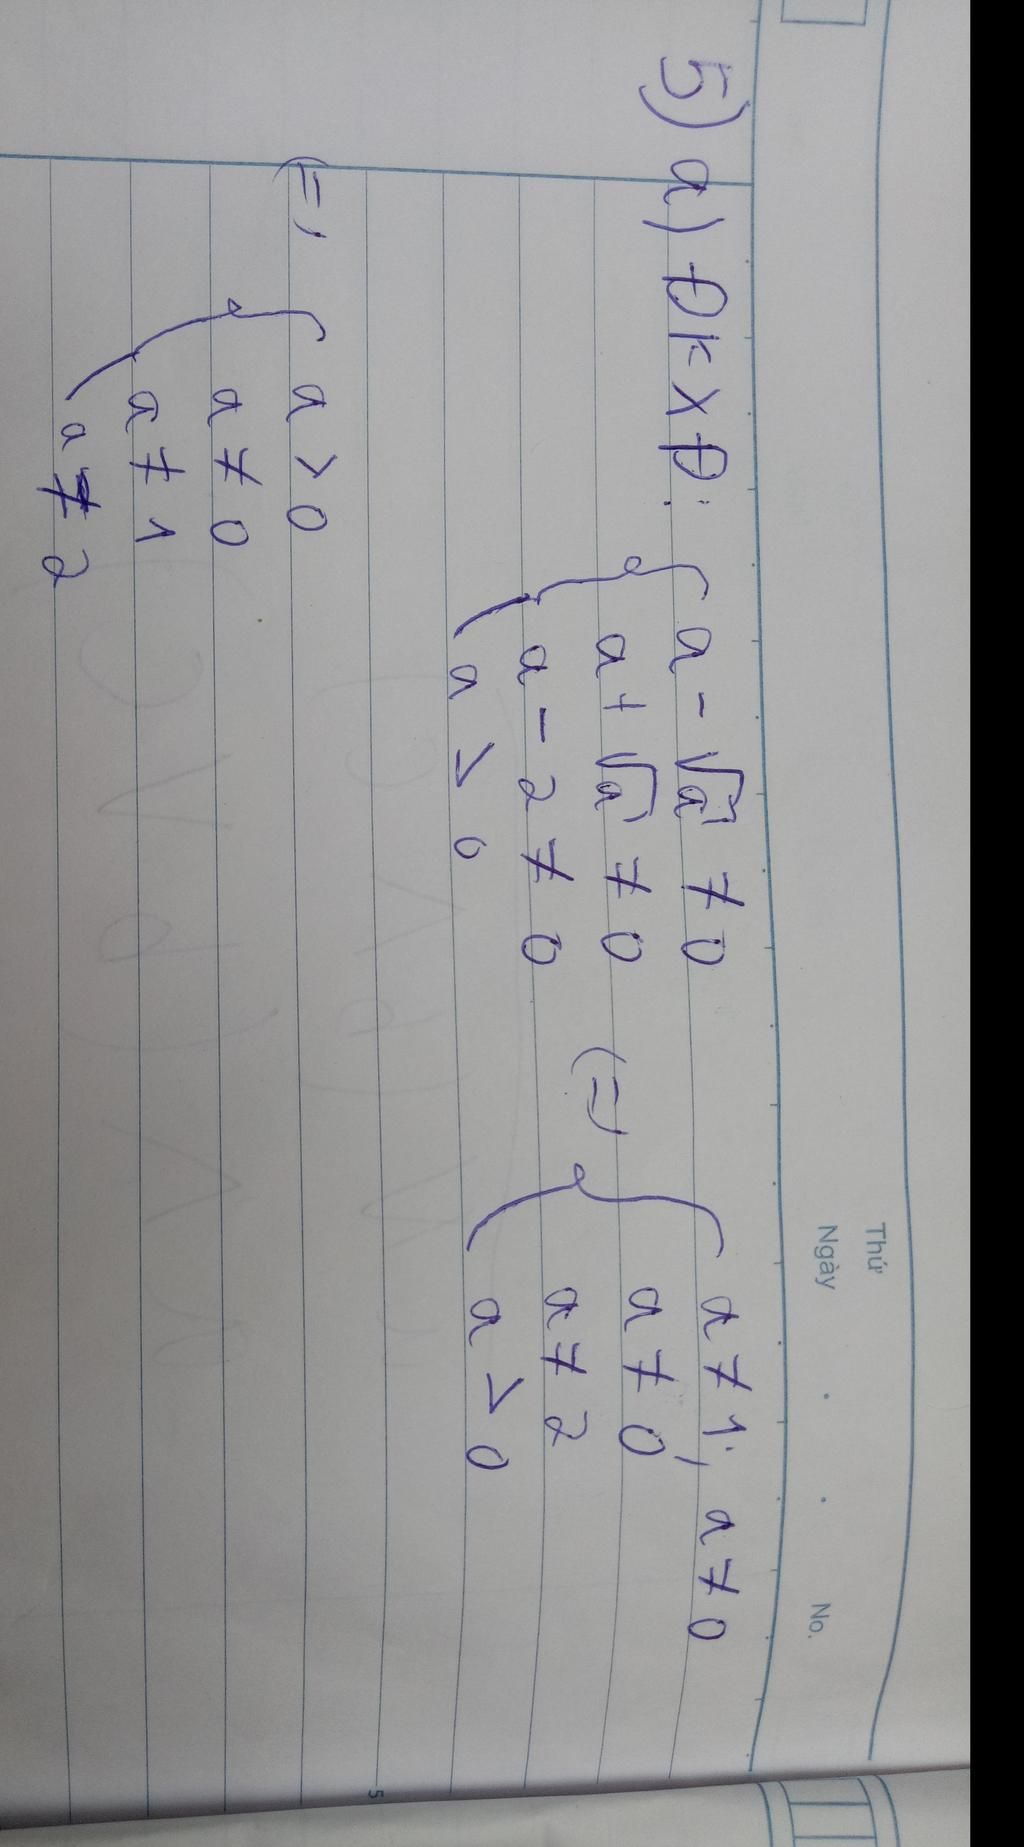 Thứ
Ngày . . No.
5) a) ĐKXĐ: { a - √a ≠ 0 (=) { a ≠ 1; a ≠ 0
a + √a ≠ 0 a ≠ 0
a - 2 ≠ 0 a ≠ 2
a > 0 a > 0
5
(=) { a > 0
a ≠ 0
a ≠ 1
a ≠ 2